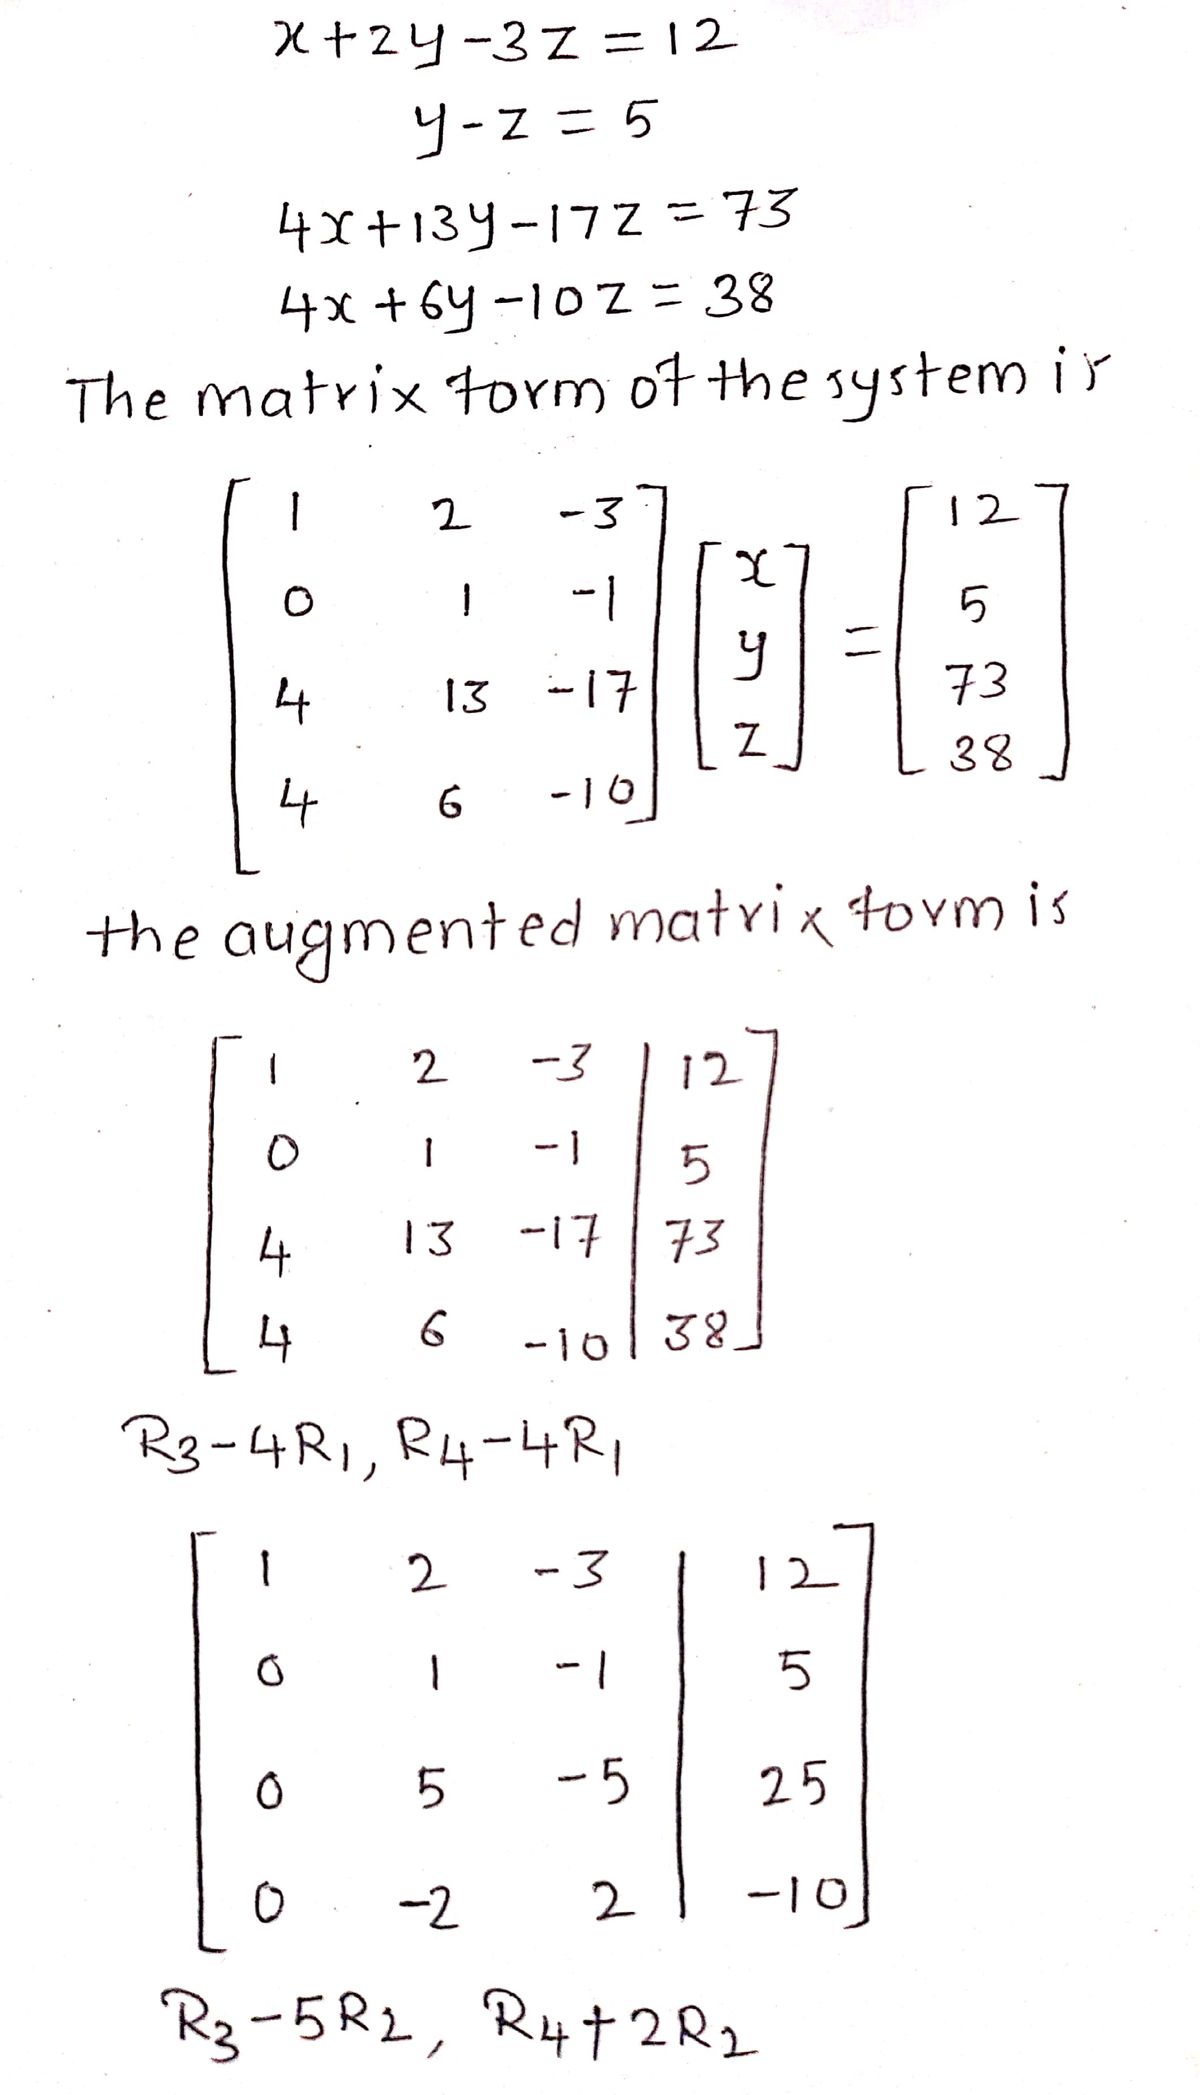 x+2y-3z=12
y-z=5
4x+13y-17z=73
4x+6y-10z=38
The matrix form of the system is
1 2 -3 12
0 1 -1 x 5
4 13 -17 y = 73
4 6 -10 z 38
the augmented matrix form is
1 2 -3 | 12
0 1 -1 | 5
4 13 -17 | 73
4 6 -10 | 38
R3-4R1, R4-4R1
1 2 -3 | 12
0 1 -1 | 5
0 5 -5 | 25
0 -2 2 | -10
R3-5R2, R4+2R2